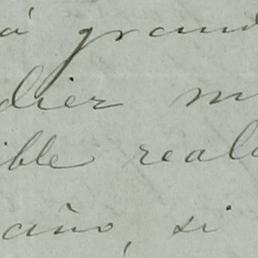 á grand
diez m
ible reali
año, si